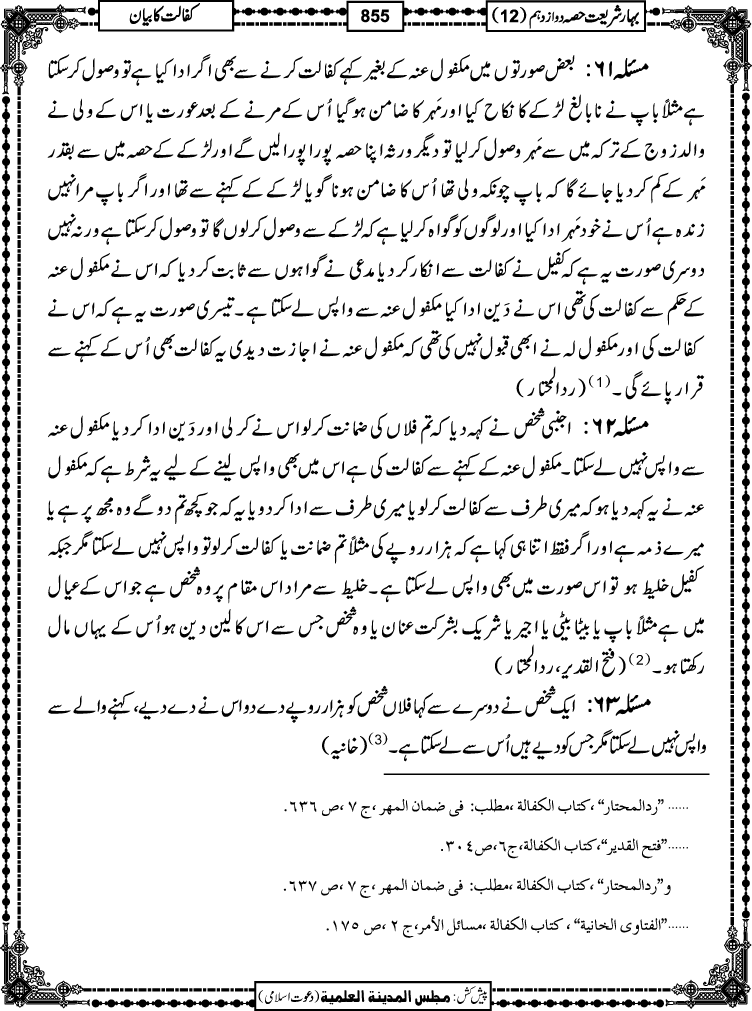 بہارِ شریعت حصہ دوازدہم (12)
855
کفالت کا بیان
مسئلہ ۶۱: بعض صورتوں میں مکفول عنہ کے بغیر کہے کفالت کرنے سے بھی اگر ادا کیا ہے تو وصول کرسکتا
ہے مثلاً باپ نے نابالغ لڑکے کا نکاح کیا اور مَہر کا ضامن ہوگیا اُس کے مرنے کے بعد عورت یا اس کے ولی نے
والد زوج کے ترکہ میں سے مَہر وصول کرلیا تو دیگر ورثہ اپنا حصہ پورا پورا لیں گے اور لڑکے کے حصہ میں سے بقدر
مَہر کے کم کردیا جائے گا کہ باپ چونکہ ولی تھا اُس کا ضامن ہونا گویا لڑکے کے کہنے سے تھا اور اگر باپ مرا نہیں
زندہ ہے اُس نے خود مَہر ادا کیا اور لوگوں کو گواہ کرلیا ہے کہ لڑکے سے وصول کرلوں گا تو وصول کرسکتا ہے ورنہ نہیں
دوسری صورت یہ ہے کہ کفیل نے کفالت سے انکار کردیا مدعی نے گواہوں سے ثابت کردیا کہ اس نے مکفول عنہ
کے حکم سے کفالت کی تھی اس نے دَین ادا کیا مکفول عنہ سے واپس لے سکتا ہے۔ تیسری صورت یہ ہے کہ اس نے
کفالت کی اور مکفول لہ نے ابھی قبول نہیں کی تھی کہ مکفول عنہ نے اجازت دیدی یہ کفالت بھی اُس کے کہنے سے
قرار پائے گی۔(1) (ردالمحتار)
مسئلہ ۶۲: اجنبی شخص نے کہہ دیا کہ تم فلاں کی ضمانت کرلو اس نے کرلی اور دَین ادا کردیا مکفول عنہ
سے واپس نہیں لے سکتا۔ مکفول عنہ کے کہنے سے کفالت کی ہے اس میں بھی واپس لینے کے لیے یہ شرط ہے کہ مکفول
عنہ نے یہ کہہ دیا ہو کہ میری طرف سے کفالت کرلو یا میری طرف سے ادا کردو یا یہ کہ جو کچھ تم دو گے وہ مجھ پر ہے یا
میرے ذمہ ہے اور اگر فقط اتنا ہی کہا ہے کہ ہزار روپے کی مثلاً تم ضمانت یا کفالت کرلو تو واپس نہیں لے سکتا مگر جبکہ
کفیل خلیط ہو تو اس صورت میں بھی واپس لے سکتا ہے۔ خلیط سے مراد اس مقام پر وہ شخص ہے جو اس کے عیال
میں ہے مثلاً باپ یا بیٹا بیٹی یا اجیر یا شریک بشرکت عنان یا وہ شخص جس سے اس کا لین دین ہو اُس کے یہاں مال
رکھتا ہو۔(2) (فتح القدیر، ردالمحتار)
مسئلہ ۶۳: ایک شخص نے دوسرے سے کہا فلاں شخص کو ہزار روپے دے دو اس نے دے دیے، کہنے والے سے
واپس نہیں لے سکتا مگر جس کو دیے ہیں اُس سے لے سکتا ہے۔(3) (خانیہ)
......"ردالمحتار"، کتاب الکفالة، مطلب: فی ضمان المهر، ج ۷، ص ۶۳۶.
......"فتح القدیر"، کتاب الکفالة، ج۶، ص۳۰۴.
و"ردالمحتار"، کتاب الکفالة، مطلب: فی ضمان المهر، ج ۷، ص ۶۳۷.
......"الفتاوی الخانیة"، کتاب الکفالة، مسائل الأمر، ج ۲، ص ۱۷۵.
پیش کش: مجلس المدینة العلمیة (دعوت اسلامی)